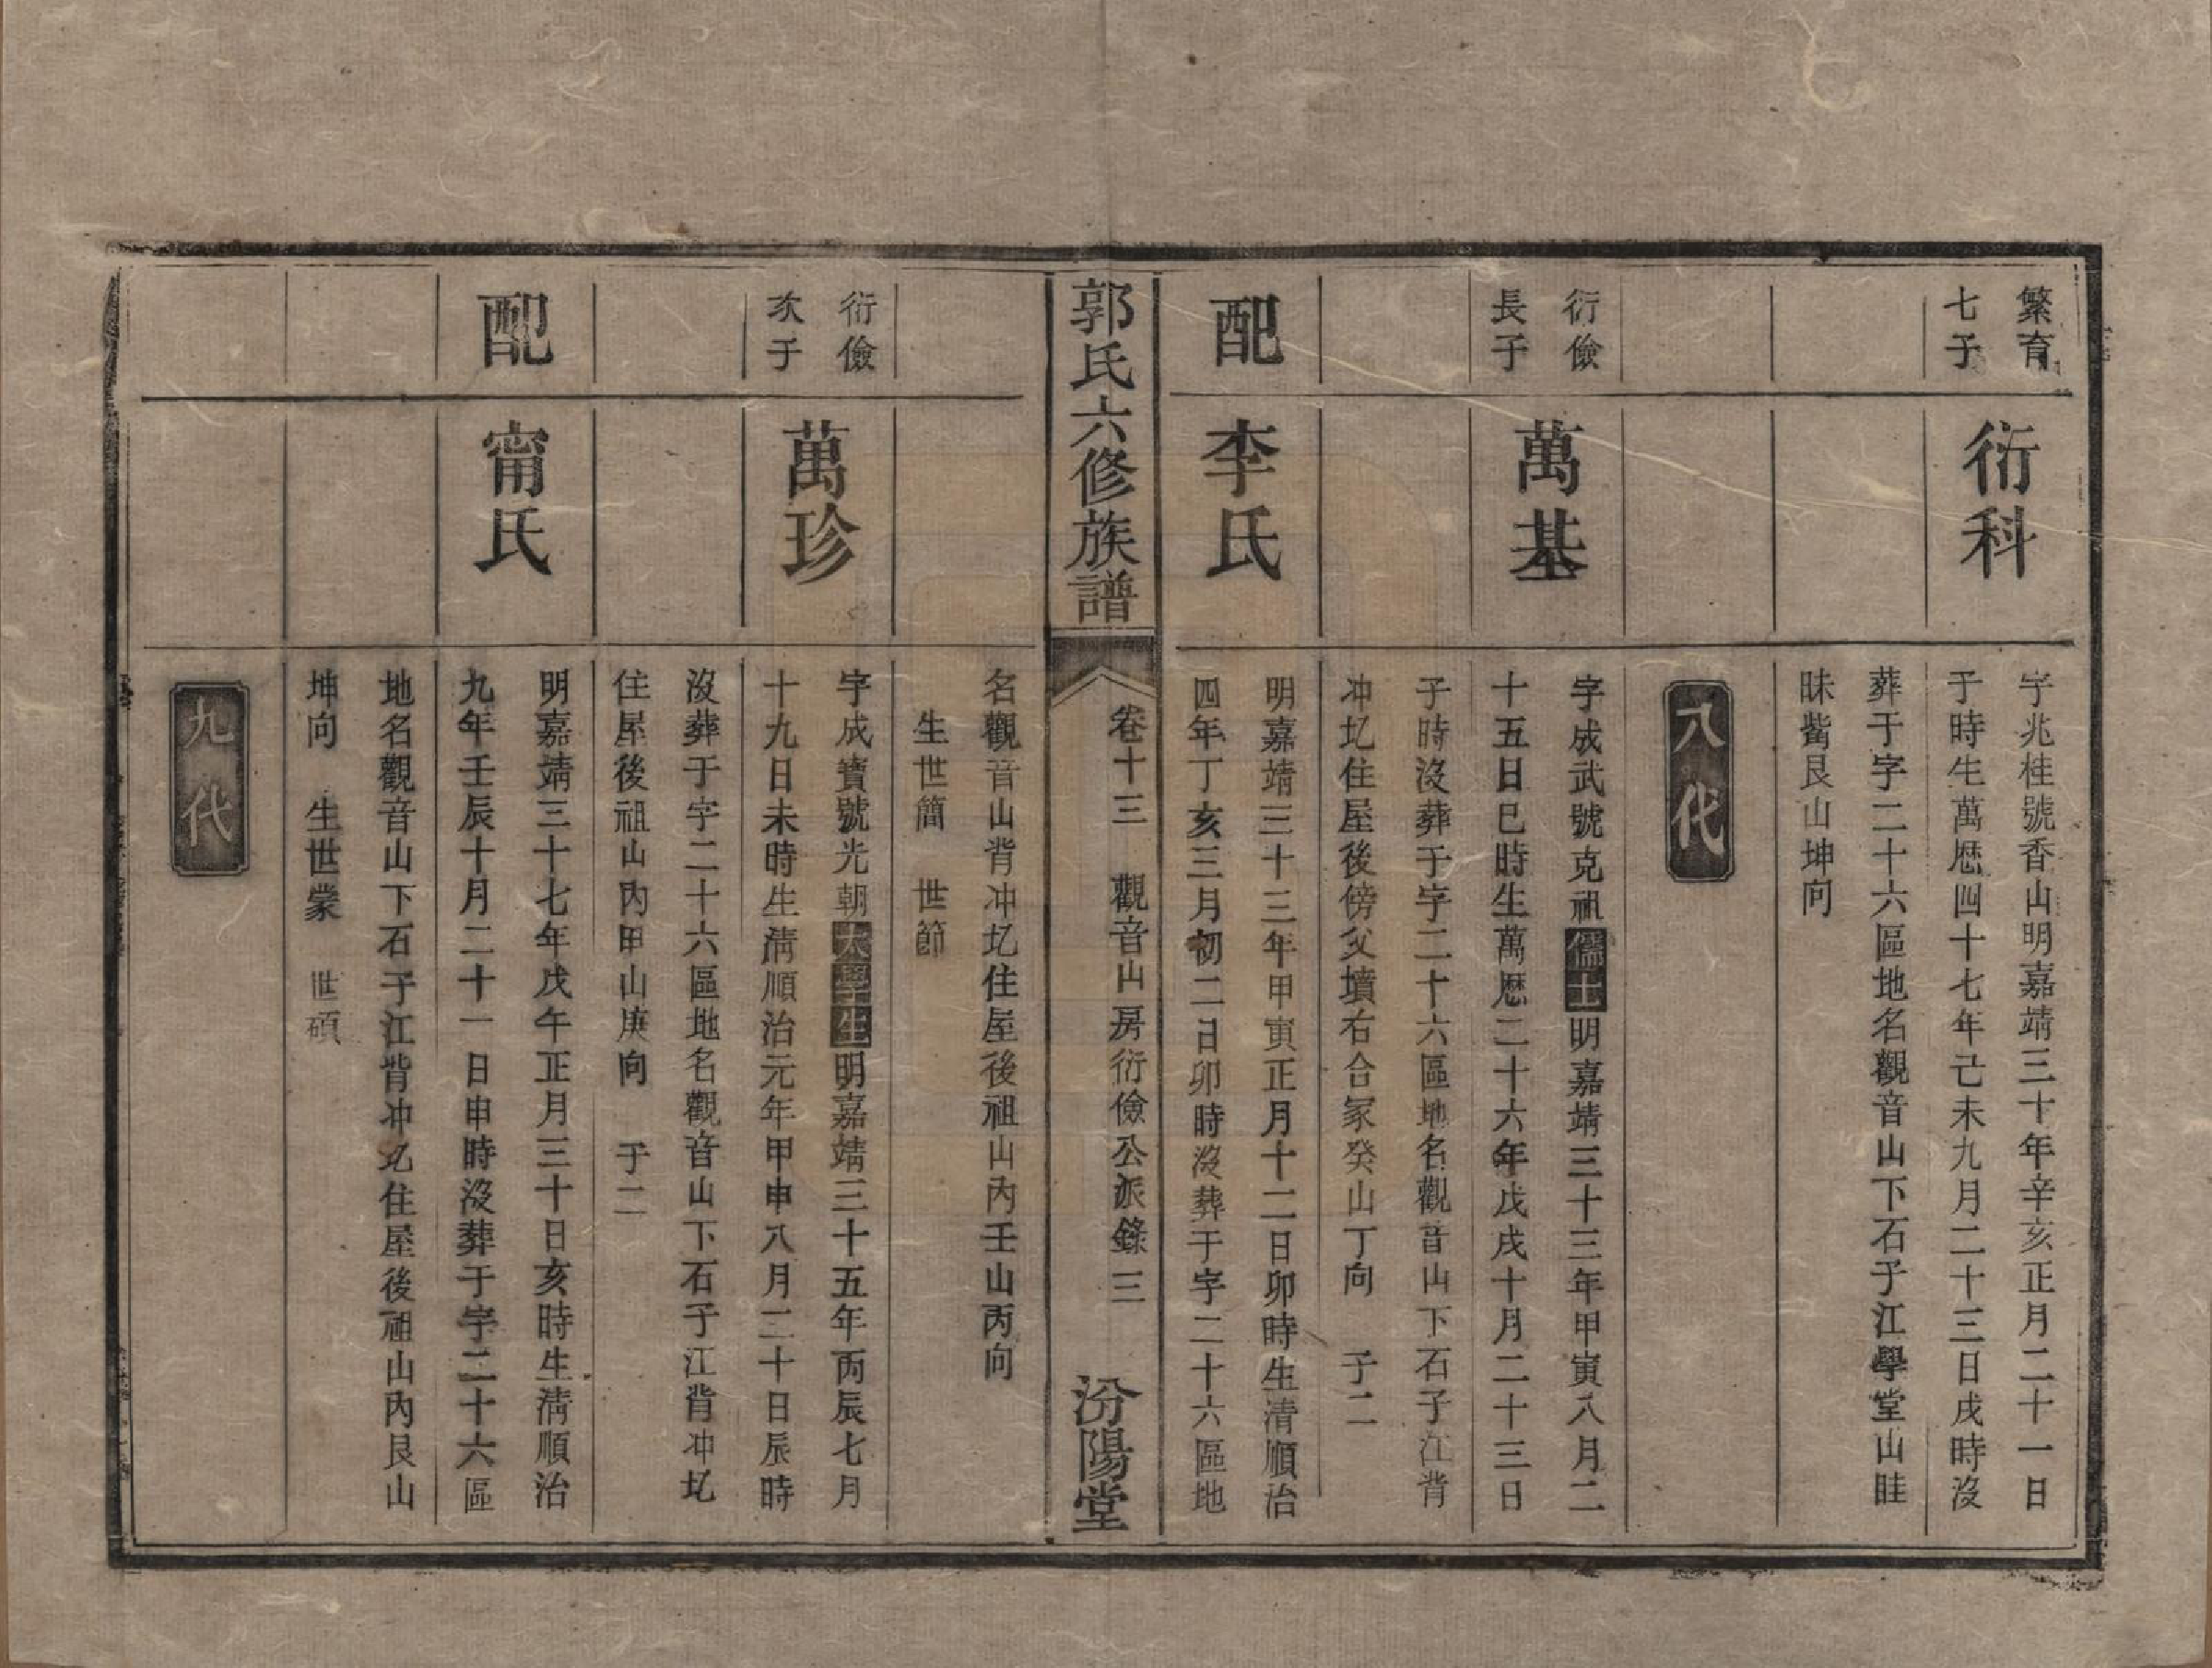 繁育
七子
衍科
字兆桂號香山明嘉靖三十年辛亥正月二十一日
子時生萬厯四十七年己未九月二十三日戌時沒
葬于字二十六區地名觀音山下石子江學堂山畦
昧觜艮山坤向
八代
衍儉
長子
萬基
字成武號克祖儒士明嘉靖三十三年甲寅八月二
十五日巳時生萬厯二十六年戊戌十月二十三日
子時沒葬于字二十六區地名觀音山下石子江背
冲圠住屋後傍父墳右合冢癸山丁向 子二
配
李氏
明嘉靖三十三年甲寅正月十二日卯時生清順治
四年丁亥三月初二日卯時沒葬于字二十六區地
郭氏六修族譜
卷十三 觀音山房衍儉公派錄 三
汾陽堂
名觀音山背冲圠住屋後祖山內壬山丙向
生世簡 世節
衍儉
次子
萬珍
字成寶號光朝太學生明嘉靖三十五年丙辰七月
十九日未時生清順治元年甲申八月二十日辰時
沒葬于字二十六區地名觀音山下石子江背冲圠
住屋後祖山內甲山庚向 子二
配
甯氏
明嘉靖三十七年戊午正月三十日亥時生清順治
九年壬辰十月二十一日申時沒葬于字二十六區
地名觀音山下石子江背冲圠住屋後祖山內艮山
坤向 生世業 世碩
九代